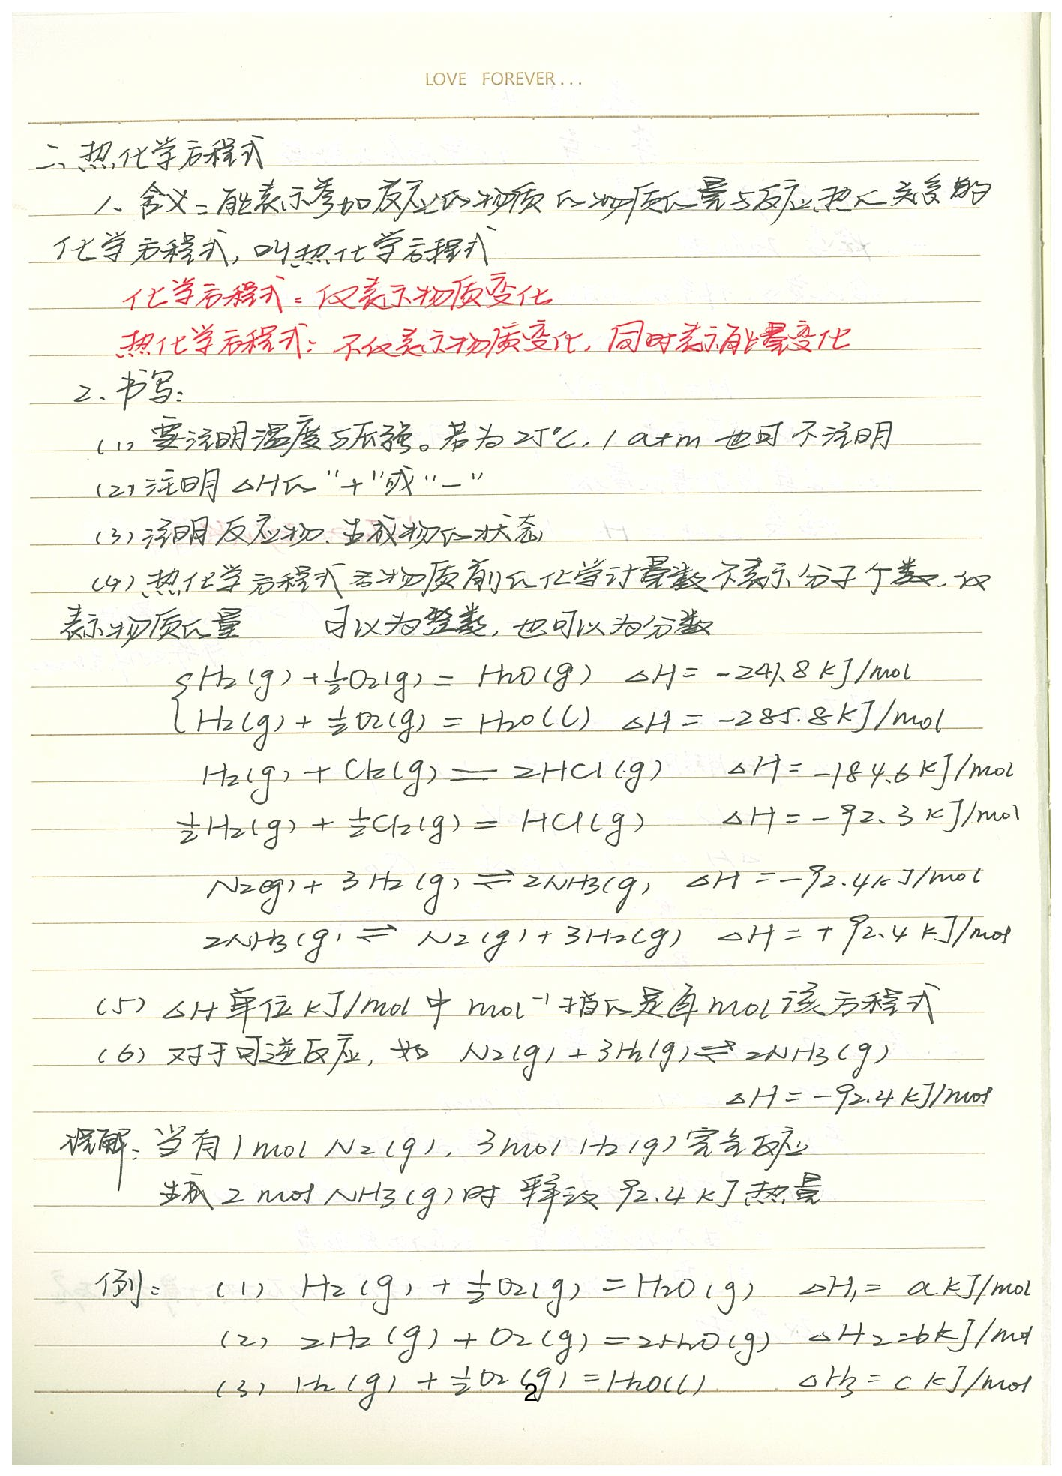 LOVE FOREVER...
二、热化学方程式
1、含义：能表示参加反应的物质的物质的量与反应热的关系的
化学方程式，叫热化学方程式
化学方程式：仅表示物质变化
热化学方程式：不仅表示物质变化，同时表示能量变化
2、书写：
(1) 要注明温度与压强。若为25℃，1atm 也可不注明
(2) 注明 △H的“+”或“-”
(3) 注明反应物、生成物的状态
(4) 热化学方程式各物质前的化学计量数不表示分子个数，仅
表示物质的量 可以为整数，也可以为分数
{ H₂(g) + ½O₂(g) = H₂O(g) △H = -241.8 kJ/mol
{ H₂(g) + ½O₂(g) = H₂O(l) △H = -285.8 kJ/mol
H₂(g) + Cl₂(g) = 2HCl(g) △H = -184.6 kJ/mol
½H₂(g) + ½Cl₂(g) = HCl(g) △H = -92.3 kJ/mol
N₂(g) + 3H₂(g) ⇌ 2NH₃(g) △H = -92.4 kJ/mol
2NH₃(g) ⇌ N₂(g) + 3H₂(g) △H = +92.4 kJ/mol
(5) △H 单位 kJ/mol 中 mol⁻¹ 指的是每mol该方程式
(6) 对于可逆反应，如 N₂(g) + 3H₂(g) ⇌ 2NH₃(g)
△H = -92.4 kJ/mol
理解：当有1mol N₂(g)、3mol H₂(g)完全反应
生成 2 mol NH₃(g)时 释放 92.4 kJ 热量
例： (1) H₂(g) + ½O₂(g) = H₂O(g) △H₁ = a kJ/mol
(2) 2H₂(g) + O₂(g) = 2H₂O(g) △H₂ = b kJ/mol
(3) H₂(g) + ½O₂(g) = H₂O(l) △H₃ = c kJ/mol
2